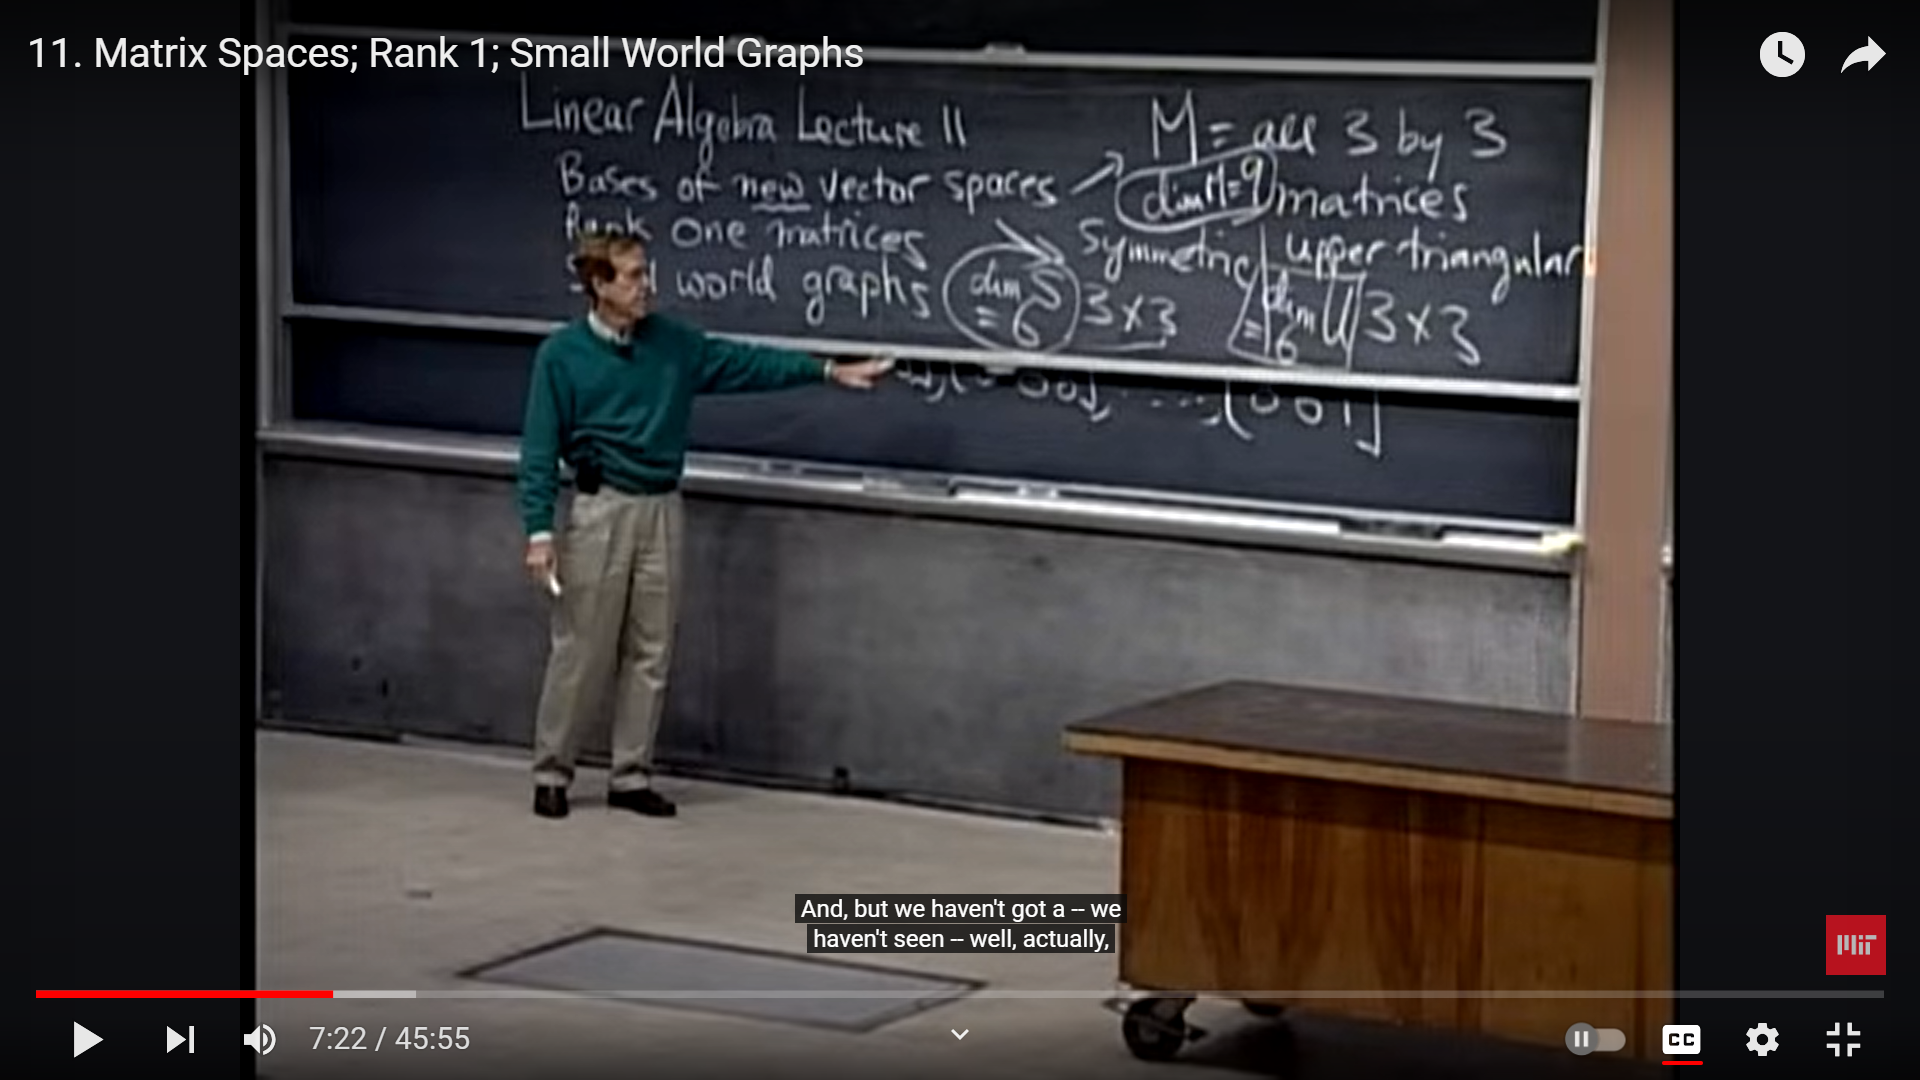 11. Matrix Spaces; Rank 1; Small World Graphs
Linear Algebra Lecture 11
Bases of new vector spaces
Rank one matrices
world graphs
M = all 3 by 3
dim M = 9 matrices
symmetric upper triangular
dim S = 6 3x3
dim U = 6 3x3
0 0 1
And, but we haven't got a -- we
haven't seen -- well, actually,
MIT
7:22 / 45:55
CC